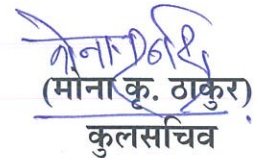 (मोना कृ. ठाकुर)
कुलसचिव